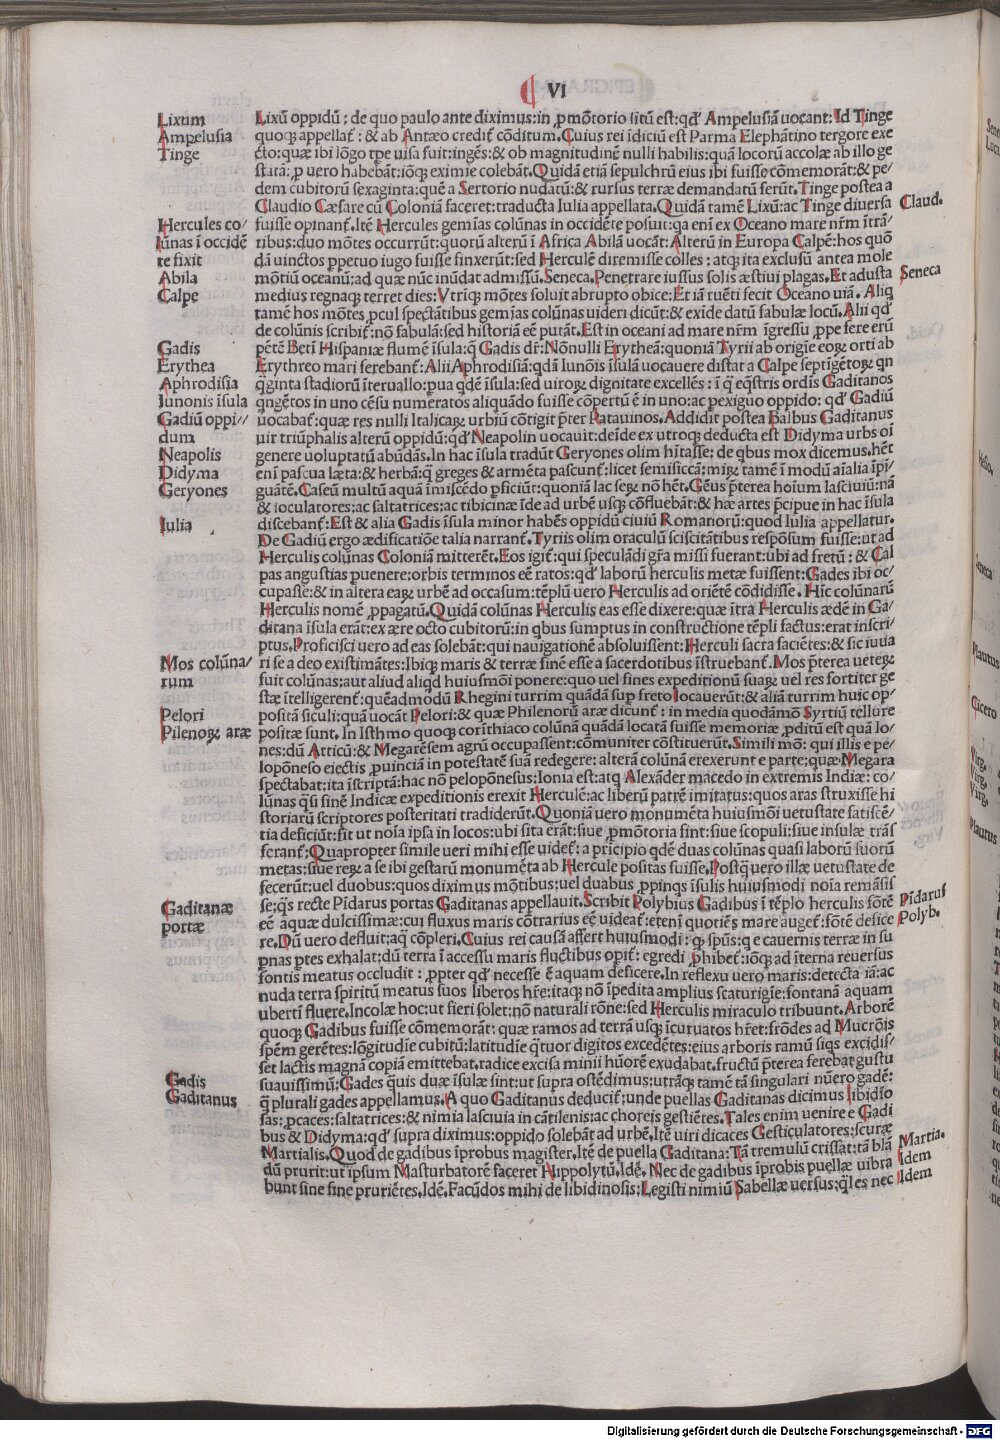 VI
Lixum
Ampelusia
Tinge
Hercules co/
lūnas ī occidē
te fixit
Abila
Calpe
Gadis
Erythea
Aphrodisia
Iunonis īsula
Gadiū oppi//
dum
Neapolis
Didyma
Geryones
Iulia
Mos colūna/
rum
Pelori
Pilenoꝝ aræ
Gaditanæ
portæ
Gadis
Gaditanus
Lixū oppidū; de quo paulo ante diximus:in ꝓmōtorio sitū est:qď Ampelusiā uocant: Id Tinge
quoqꝫ appellat̄ : & ab Antæo credit̄ cōditum. Cuius rei īdiciū est Parma Elephātino tergore exe
cto:quæ ibi lōgo tp̄e uisa fuit:ingēs:& ob magnitudinē nulli habilis:quā locorū accolæ ab illo ge
statā: ꝓ uero habebāt:ioqꝫ eximie colebāt. Quidā etiā sepulchrū eius ibi fuisse cōmemorāt:& pe/
dem cubitorū sexaginta:quē a Sertorio nudatū:& rursus terræ demandatū ferūt. Tinge postea a
Claudio Cæsare cū Coloniā faceret:traducta Iulia appellata. Quidā tamē Lixū:ac Tinge diuersa
fuisse opinant̄. Itē Hercules gemīas colūnas in occidēte posuit:qa enī ex Oceano mare nr̄m ītrā/
tibus:duo mōtes occurrūt:quorū alterū ī Africa Abilā uocāt: Alterū in Europa Calpē:hos quō
dā uinctos ꝑpetuo iugo fuisse finxerūt:sed Herculē diremisse colles : atqꝫ ita exclusū antea mole
mōtiū oceanū:ad quæ nūc inūdat admissū. Seneca. Penetrare iussus solis æstiui plagas. Et adusta
medius regnaqꝫ terret dies: Vtrīqꝫ mōtes soluit abrupto obice: Et iā ruēti fecit Oceano uiā. Aliq
tamē hos mōtes ꝓcul spectātibus gemīas colūnas uideri dicūt:& exīde datū fabulæ locū. Alii qď
de colūnis scribit̄: nō fabulā:sed historiā eē putāt. Est in oceani ad mare nr̄m īgressu ꝓpe fere erū
pētē Betī Hispaniæ flumē īsula:q̄ Gadis dr̄: Nōnulli Erytheā:quoniā Tyrii ab origīe eoꝝ orti ab
Erythreo mari ferebant̄: Alii Aphrodisiā:qdā Iunōis īsulā uocauere distat a Calpe septīgētoꝝ qn
q̄ginta stadiorū īteruallo:pua qdē īsula:sed uiroꝝ dignitate excellēs : ī q̄ eq̄stris ordīs Gaditanos
qngētos in uno cēsu numeratos aliquādo fuisse cōpertū ē in uno:ac pexiguo oppido: qď Gadiū
uocabat̄: quæ res nulli Italicaꝝ urbiū cōtigit p̄ter Patauinos. Addidit postea Balbus Gaditanus
uir triūphalis alterū oppidū:qď Neapolin uocauit:deīde ex utroqꝫ deducta est Didyma urbs oī
genere uoluptatū abūdās. In hac īsula tradūt Geryones olim hītasse: de qbus mox dicemus. hēt
enī pascua læta:& herbā:q̄ greges & armēta pascunt̄: licet semisiccā: miꝝ tamē ī modū aīalia īpī/
guātē. Caseū multū aquā īmiscēdo ꝑficiūt:quoniā lac seꝝ nō hēt. Gēus p̄terea hoium lasciuiū:nā
& ioculatores:ac saltatrices:ac tibicinæ īde ad urbē usqꝫ cōfluebāt:& hæ artes p̄cipue in hac īsula
discebant̄: Est & alia Gadis īsula minor habēs oppidū ciuiū Romariorū:quod Iulia appellatur.
De Gadiū ergo ædificatiōe talia narrant̄. Tyriis olim oraculū sciscitātibus respōsum fuisse:ut ad
Herculis colūnas Coloniā mitterēt. Eos igit̄: qui speculādi gr̄a missi fuerant:ubi ad fretū : & Cal
pas angustias puenere:orbis terminos eē ratos:qď laborū herculis metæ fuissent: Gades ibi oc/
cupasse:& in altera eaꝝ urbē ad occasum:tēplū uero Herculis ad oriētē cōdidisse. Hīc colūnarū
Herculis nomē ꝓpagatū. Quidā colūnas Herculis eas esse dixere:quæ ītra Herculis ædē in Ga/
ditana īsula erāt:ex ære octo cubitorū:in qbus sumptus in constructione tēpli factus:erat inscri/
ptus. Proficisci uero ad eas solebāt:qui nauigationē absoluissent: Herculi sacra faciētes:& sic iuua
ri se a deo existimātes: Ibiqꝫ maris & terræ finē esse a sacerdotibus īstruebant̄. Mos p̄terea ueteꝝ
fuit colūnas:aut aliud aliqd huiusmōi ponere:quo uel fines expeditionū suaꝝ uel res fortiter ge
stæ ītelligerent̄: quēadmodū Rhegini turrim quādā sup freto locauerūt:& aliā turrim huic op/
positā siculi:quā uocāt Pelori:& quæ Philenorū aræ dicunt̄ : in media quodāmō Syrtiū tellure
positæ sunt. In Isthmo quoqꝫ corīthiaco colūnā quādā locatā fuisse memoriæ ꝓditū est quā Io/
nes:dū Atticū:& Megarēsem agrū occupassent:cōmuniter cōstituerūt. Simili mō: qui illis e pe/
lopōneso eiectis ꝓuinciā in potestatē suā redegere: alterā colūnā erexerunt e parte:quæ Megara
spectabat:ita īscriptā:hac nō pelopōnesus:Ionia est:atqꝫ Alexāder macedo in extremis Indiæ: co/
lūnas q̄si finē Indicæ expeditionis erexit Herculē:ac liberū patrē imitatus:quos aras struxisse hi
storiarū scriptores posteritati tradiderūt. Quoniā uero monumēta huiusmōi uetustate fatiscē/
tia deficiūt:fit ut noīa ipsa in locos:ubi sita erāt:siue ꝓmōtoria sint:siue scopuli:siue insulæ trās
ferant̄: Quapropter simile ueri mihi esse uidet̄: a pricipio qdē duas colūnas quasi laborū suorū
metas:siue reꝝ a se ibi gestarū monumēta ab Hercule positas fuisse. Postq̄ uero illæ uetustate de
fecerūt:uel duobus:quos diximus mōtibus:uel duabus ꝓpinqs īsulis huiusmodi noīa remāsis
se:q̄s recte Pīdarus portas Gaditanas appellauit. Scribit Polybius Gadibus ī tēplo herculis fōtē
eē aquæ dulcissimæ:cui fluxus maris cōtrarius eē uideat̄: etenī quotiēs mare auget̄: fōtē defice
re. Dū uero defluit:aq̄ cōpleri. Cuius rei causā affert huiusmodi : qꝫ spūs:q e cauernis terræ in su
pnas ꝑtes exhalat:dū terra ī accessu maris fluctibus opit̄: egredi ꝓhibet̄: ioqꝫ ad īterna reuersus
fontis meatus occludit : ꝓpter qď necesse ē aquam deficere. In reflexu uero maris:detecta iā:ac
nuda terra spiritū meatus suos liberos hr̄e:itaqꝫ nō īpedita amplius scaturigīe:fontanā aquam
ubertī fluere. Incolæ hoc:ut fieri solet:nō naturali rōne:sed Herculis miraculo tribuunt. Arborē
quoqꝫ Gadibus fuisse cōmemorāt: quæ ramos ad terrā usqꝫ īcuruatos hr̄et:frōdes ad Mucrōis
spēm gerētes:lōgitudīe cubitū:latitudīe q̄tuor digitos excedētes:eius arboris ramū siqs excidis/
set lactis magnā copiā emittebat. radice excisa minii hūorē exudabat. fructū p̄terea ferebat gustu
suauissimū: Gades q̄uis duæ īsulæ sint:ut supra ostēdimus:utrāqꝫ tamē tā singulari nūero gadē:
q̄ plurali gades appellamus. A quo Gaditanus deducit̄: unde puellas Gaditanas dicimus libidīo
sas: ꝓcaces:saltatrices:& nimia lasciuia in cātilenis:ac choreis gestiētes. Tales enim uenire e Gadi
bus & Didyma:qď supra diximus:oppido solebāt ad urbē. Itē uiri dicaces Gesticulatores:scuræ
Martialis. Quod de gadibus īprobus magister. Itē de puella Gaditana: Tā tremulū crissat:tā blā
dū prurit:ut ipsum Masturbatorē faceret Hippolytū. Idē. Nec de gadibus īprobis puellæ uibra
bunt sine fine pruriētes. Idē. Facūdos mihi de libidinosis: Legisti nimiū Sabellæ uersus:q̄les nec
Claud.
Seneca
Pīdarus
Polyb.
Martia.
Idem
Idem
Digitalisierung gefördert durch die Deutsche Forschungsgemeinschaft - DFG